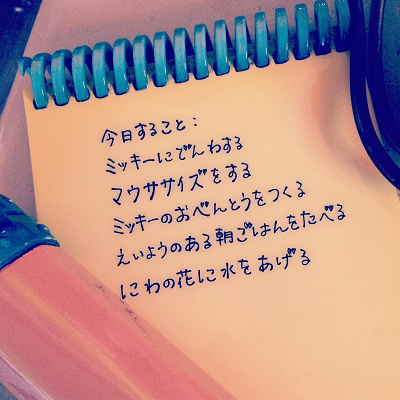 今日すること：
ミッキーにでんわする
マウササイズをする
ミッキーのおべんとうをつくる
えいようのある朝ごはんをたべる
にわの花に水をあげる